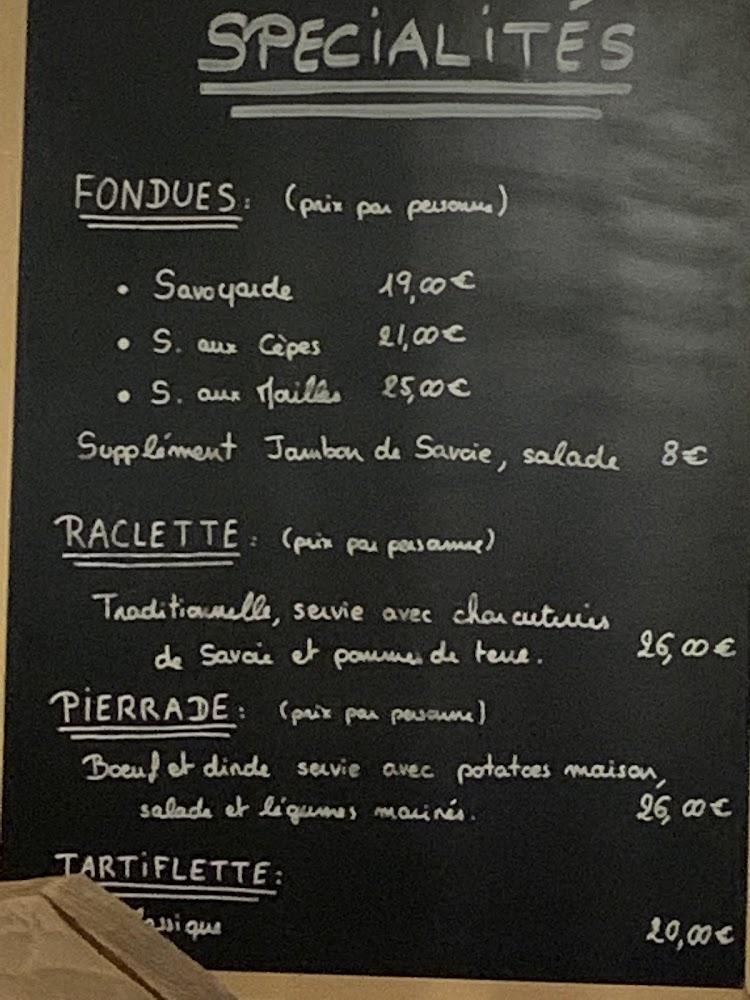 SPECIALITÉS
FONDUES: (prix par personne)
• Savoyarde 19,00€
• S. aux Cèpes 21,00€
• S. aux Morilles 25,00€
Supplément Jambon de Savoie, salade 8€
RACLETTE: (prix par personne)
Traditionnelle, servie avec charcuteries
de Savoie et pommes de terre. 26,00€
PIERRADE: (prix par personne)
Boeuf et dinde servie avec potatoes maison,
salade et légumes marinés. 26,00€
TARTIFLETTE:
20,00€